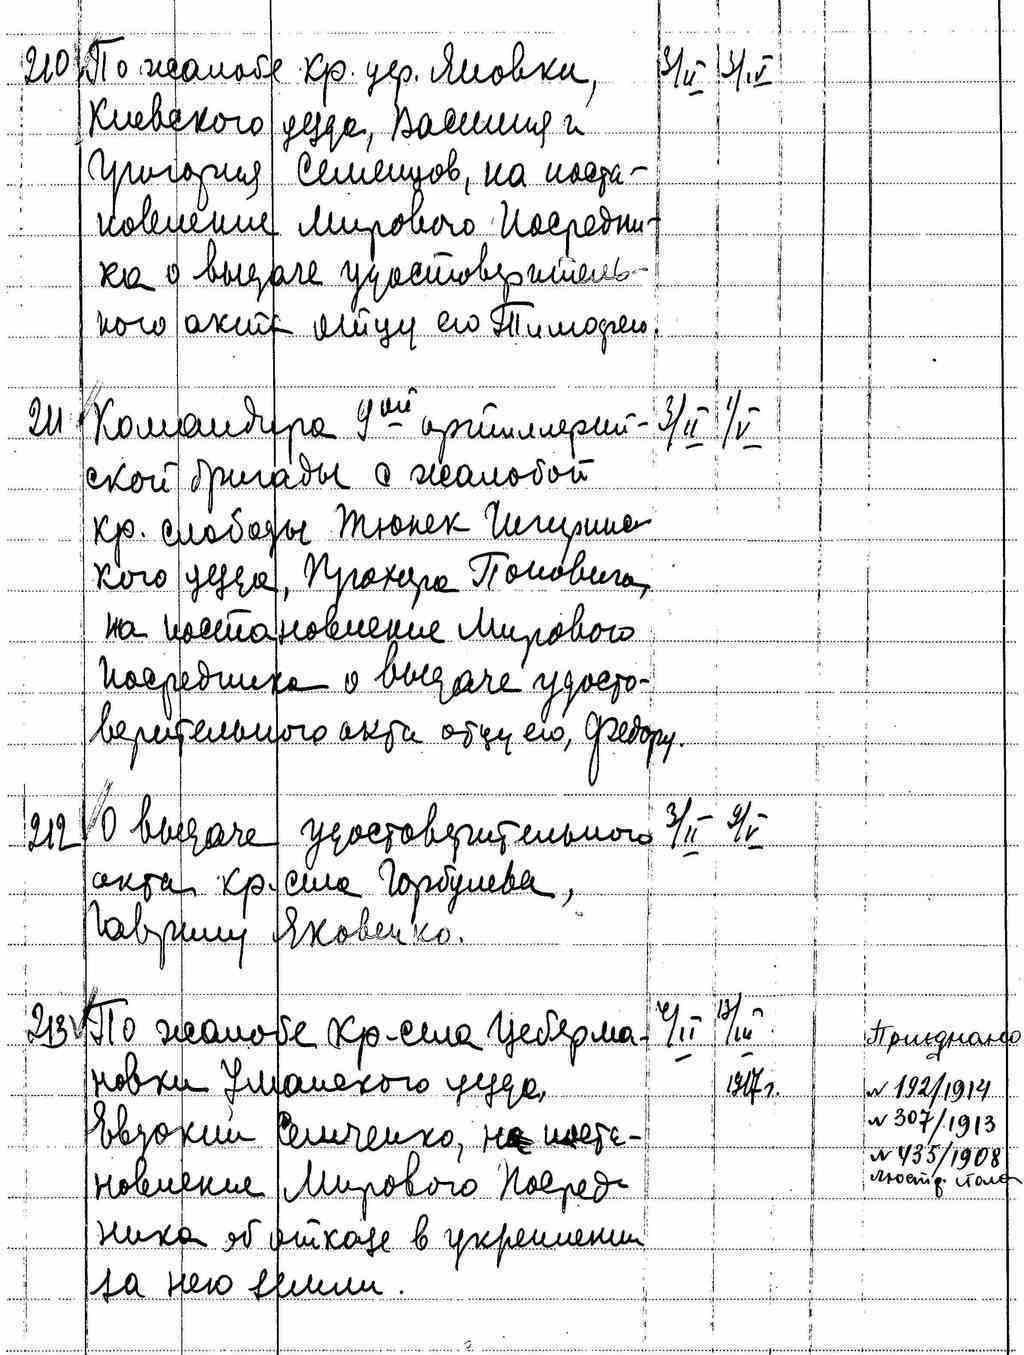 210 По жалобе кр. дер. Яновки, 3/II 3/IV
Киевского уезда, Василия и
Григория Семенцов, на поста-
новление Мирового Посредни-
ка о выдаче удостоверитель-
ного акта отцу его Тимофею.
211 Командира 9ой артиллерий- 3/II 1/V
ской бригады с жалобой
кр. слободы Тюнек Чигиринс
кого уезда, Прохора Поповича,
на постановление Мирового
Посредника о выдаче удосто-
верительного акта отцу его, Федору.
212 О выдаче удостоверительного 3/II 9/V
акта кр. села Горбулева,
Гаврилу Яковенко.
213 По жалобе кр. села Цеберма- 4/II 13/III
новки Уманского уезда, 1917 г.
Евдокии Семченко, на поста-
новление Мирового Посред-
ника об отказе в укреплении
за нею земли.
Приєднано
№ 192/1914
№ 307/1913
№ 435/1908